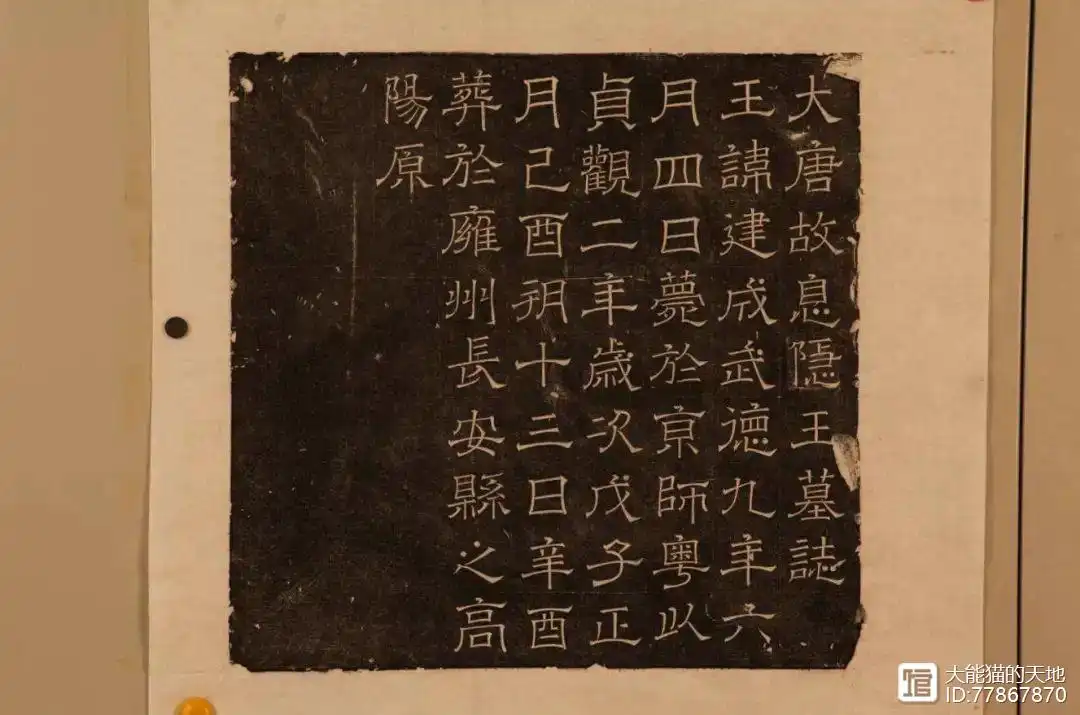 大唐故息隱王墓誌
王諱建成武德九年六
月四日薨於京師粵以
貞觀二年歲次戊子正
月己酉朔十三日辛酉
葬於雍州長安縣之高
陽原
大能猫的天地
ID:77867870